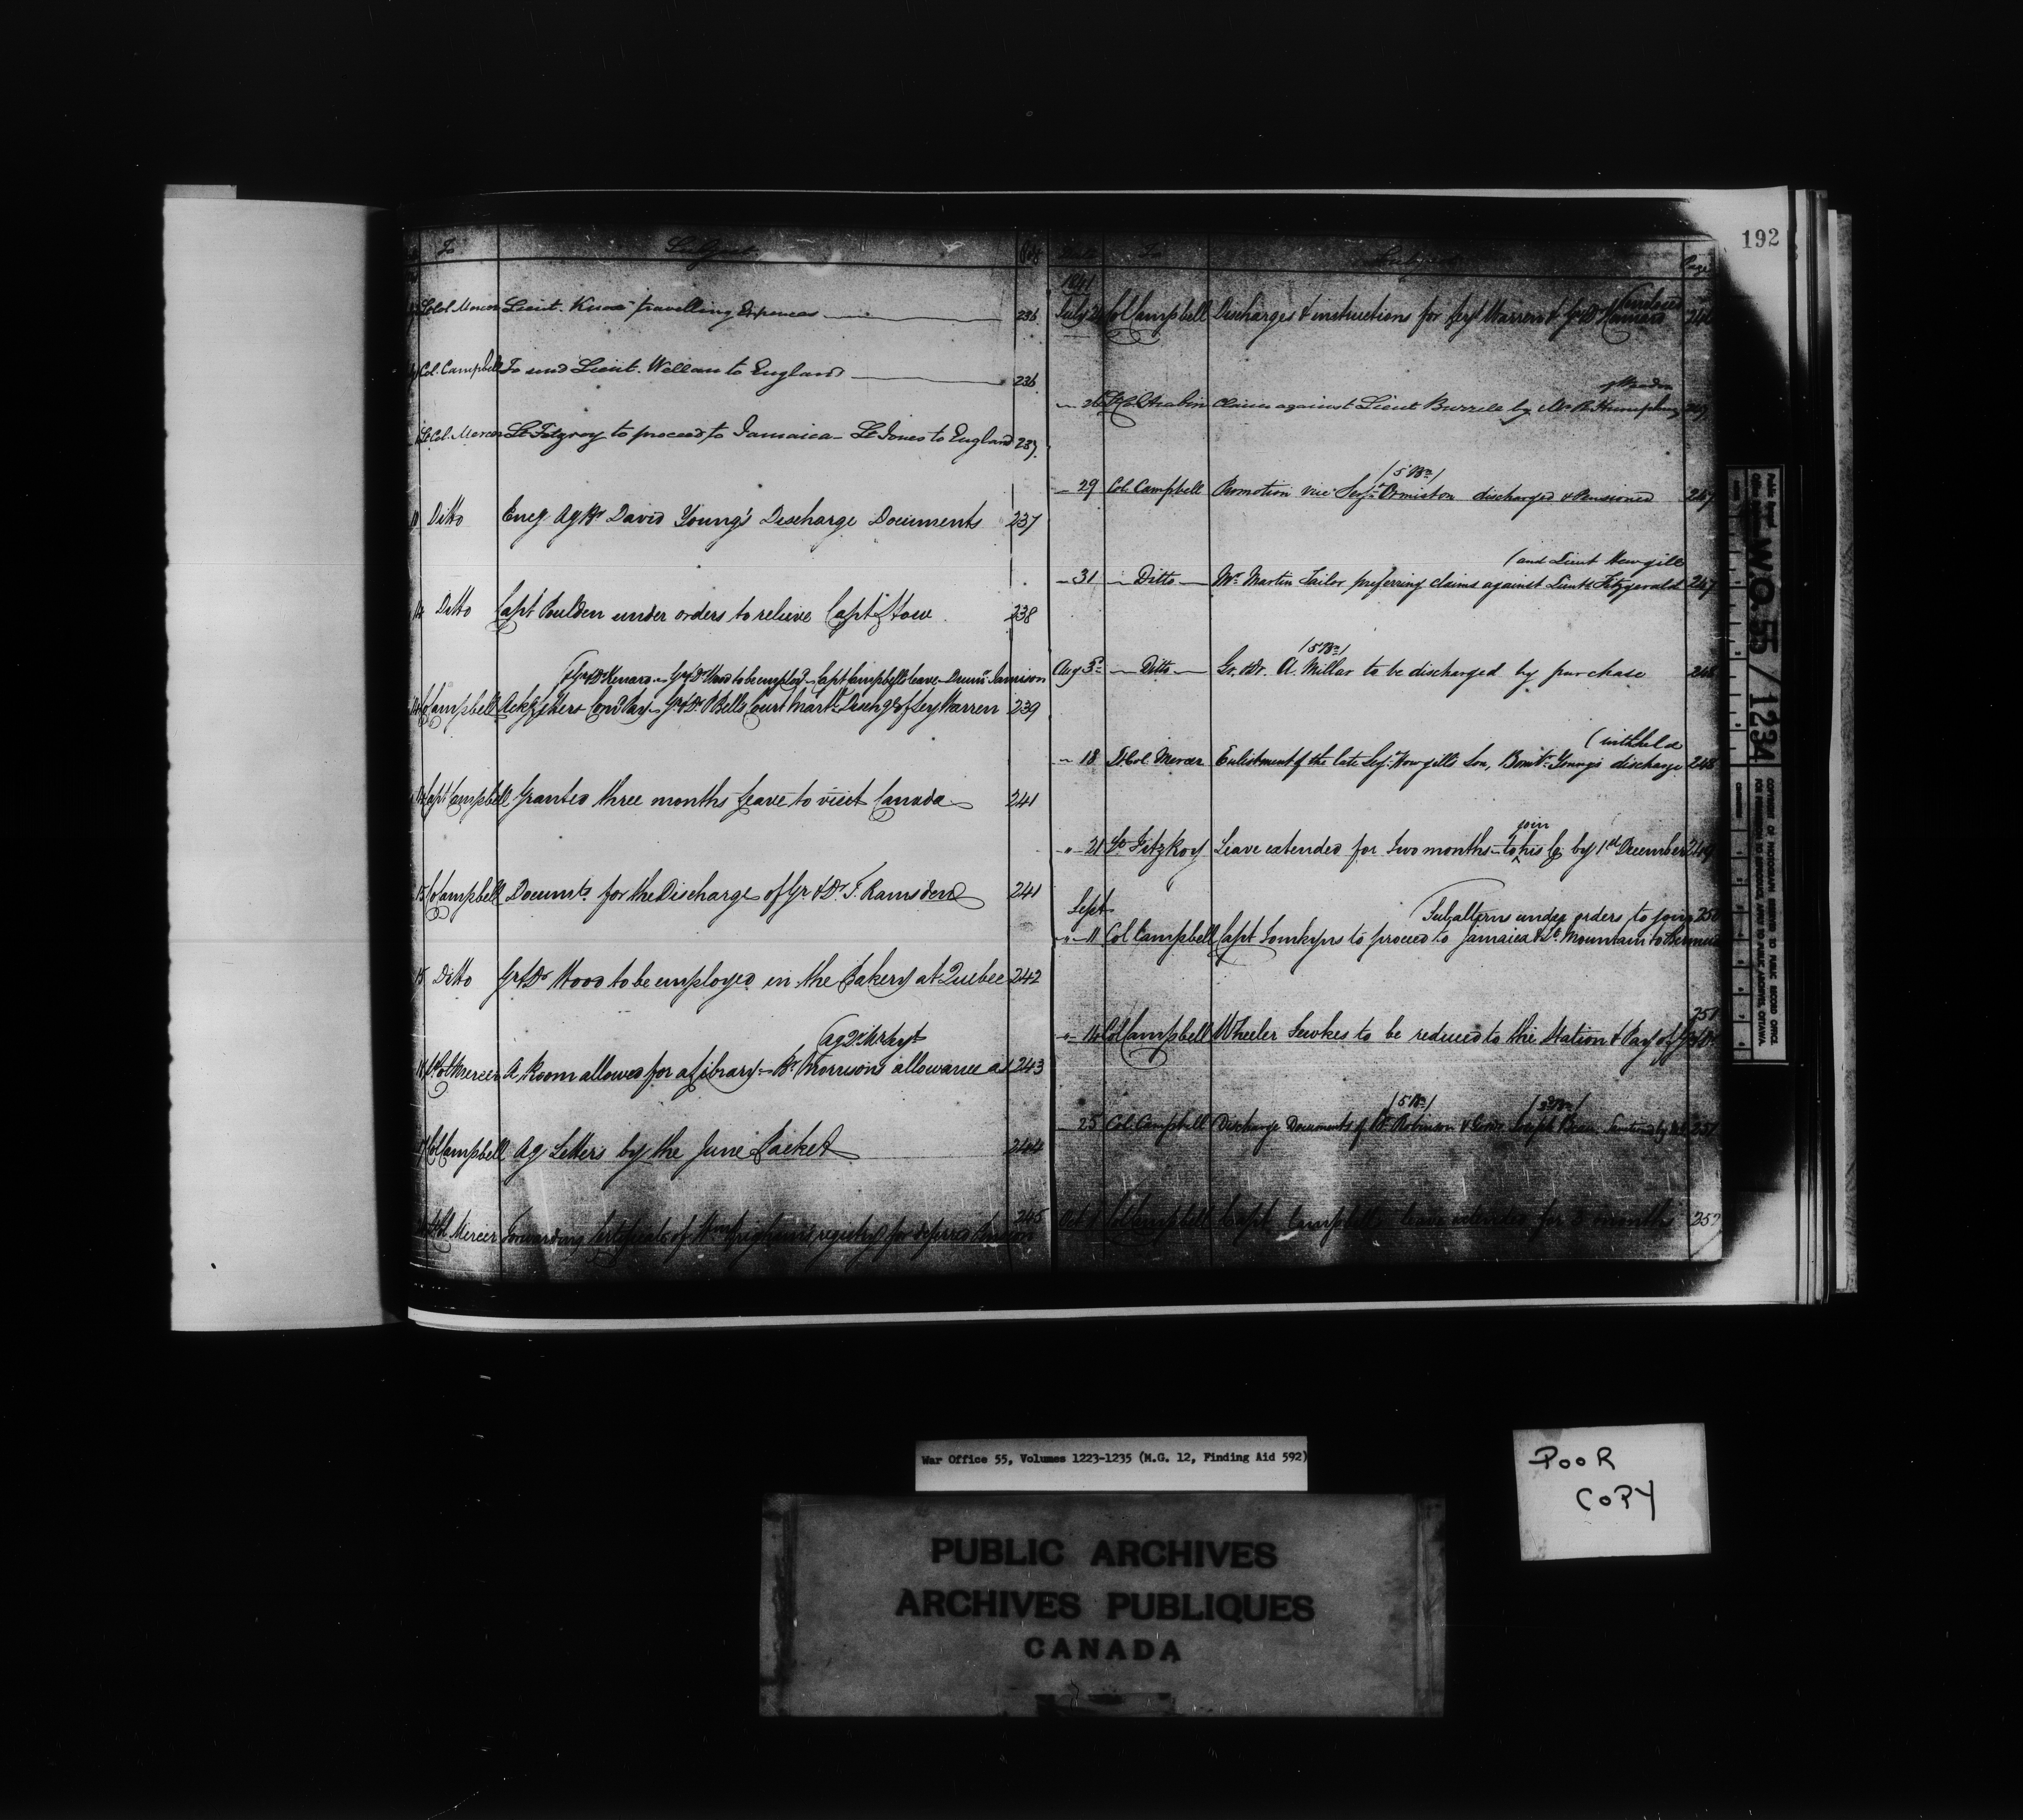 192
To Subject Page
Lt Col. Mercer Lieut. Knox' travelling Expences 236
Col. Campbell To send Lieut. to England 236
Lt Col. Mercer Lt Fitzroy to proceed to Jamaica – Lt Jones to England 237
Ditto David Young's Discharge Documents 237
14 Ditto Capt Poulden under orders to relieve Capt Stow 238
Gr & Dr Wood to be employed – Capt Campbell's leave – Jamison
Campbell Gr & Dr P Bells Court Mart Disch of Serj Warren 239
Capt Campbell Granted three months leave to visit Canada 241
15 Campbell Documts for the Discharge of Gr & Dr T. Ramsden 241
15 Ditto Gr & Dr Wood to be employed in the Bakery at Quebec 242
(ag Qr Mr Serjt
Lt Col Mercer A Room allowed for a Library – Br Morrison's allowance as 243
17 Col Campbell Ag Letters by the June Packet 244
245
Mercer Forwarding Certificate of registry for deferred Pension
Date To Subject Page
1841
(enclosed
July Col Campbell Discharges & instructions for Serj Warren & Gr & Dr 246
of Weedon
26 Claim against Lieut Burrell by Mr R Humphrey
(5 Bn)
29 Col. Campbell Promotion vice Serjt Ormiston discharged & Pensioned 247
(and Lieut Howgill
31 Ditto Mr Martin Tailor preferring claims against Lieut Fitzgerald 247
(5 Bn)
Aug 3d Ditto Gr. & Dr. A. Millar to be discharged by purchase 248
(withheld
18 Lt. Col. Mercer Enlistment of the late Serjt Howgill's Son, Bombr Young's discharge 248
join
21 Lt FitzRoy Leave extended for two months – to his Co by 1st December 249
Sept
(Subalterns under orders to join 250
11 Col Campbell Capt Tomkyns to proceed to Jamaica & Lt Mountain to Bermuda
251
14 Col Campbell Wheeler to be reduced to the Station & Pay of Gr & Dr
(5 Bn) (3 Bn)
25 Col. Campbell Discharge Documents of Br Robinson & Gr Joseph 251
Oct Col Campbell Capt Campbell's leave extended for 3 months 252
Public Record Office
W.O. 55 / 1234
COPYRIGHT OF PHOTOGRAPH RESERVED TO PUBLIC RECORD OFFICE.
FOR PERMISSION TO REPRODUCE APPLY TO PUBLIC ARCHIVES, OTTAWA.
War Office 55, Volumes 1223-1235 (M.G. 12, Finding Aid 592)
POOR
COPY
PUBLIC ARCHIVES
ARCHIVES PUBLIQUES
CANADA